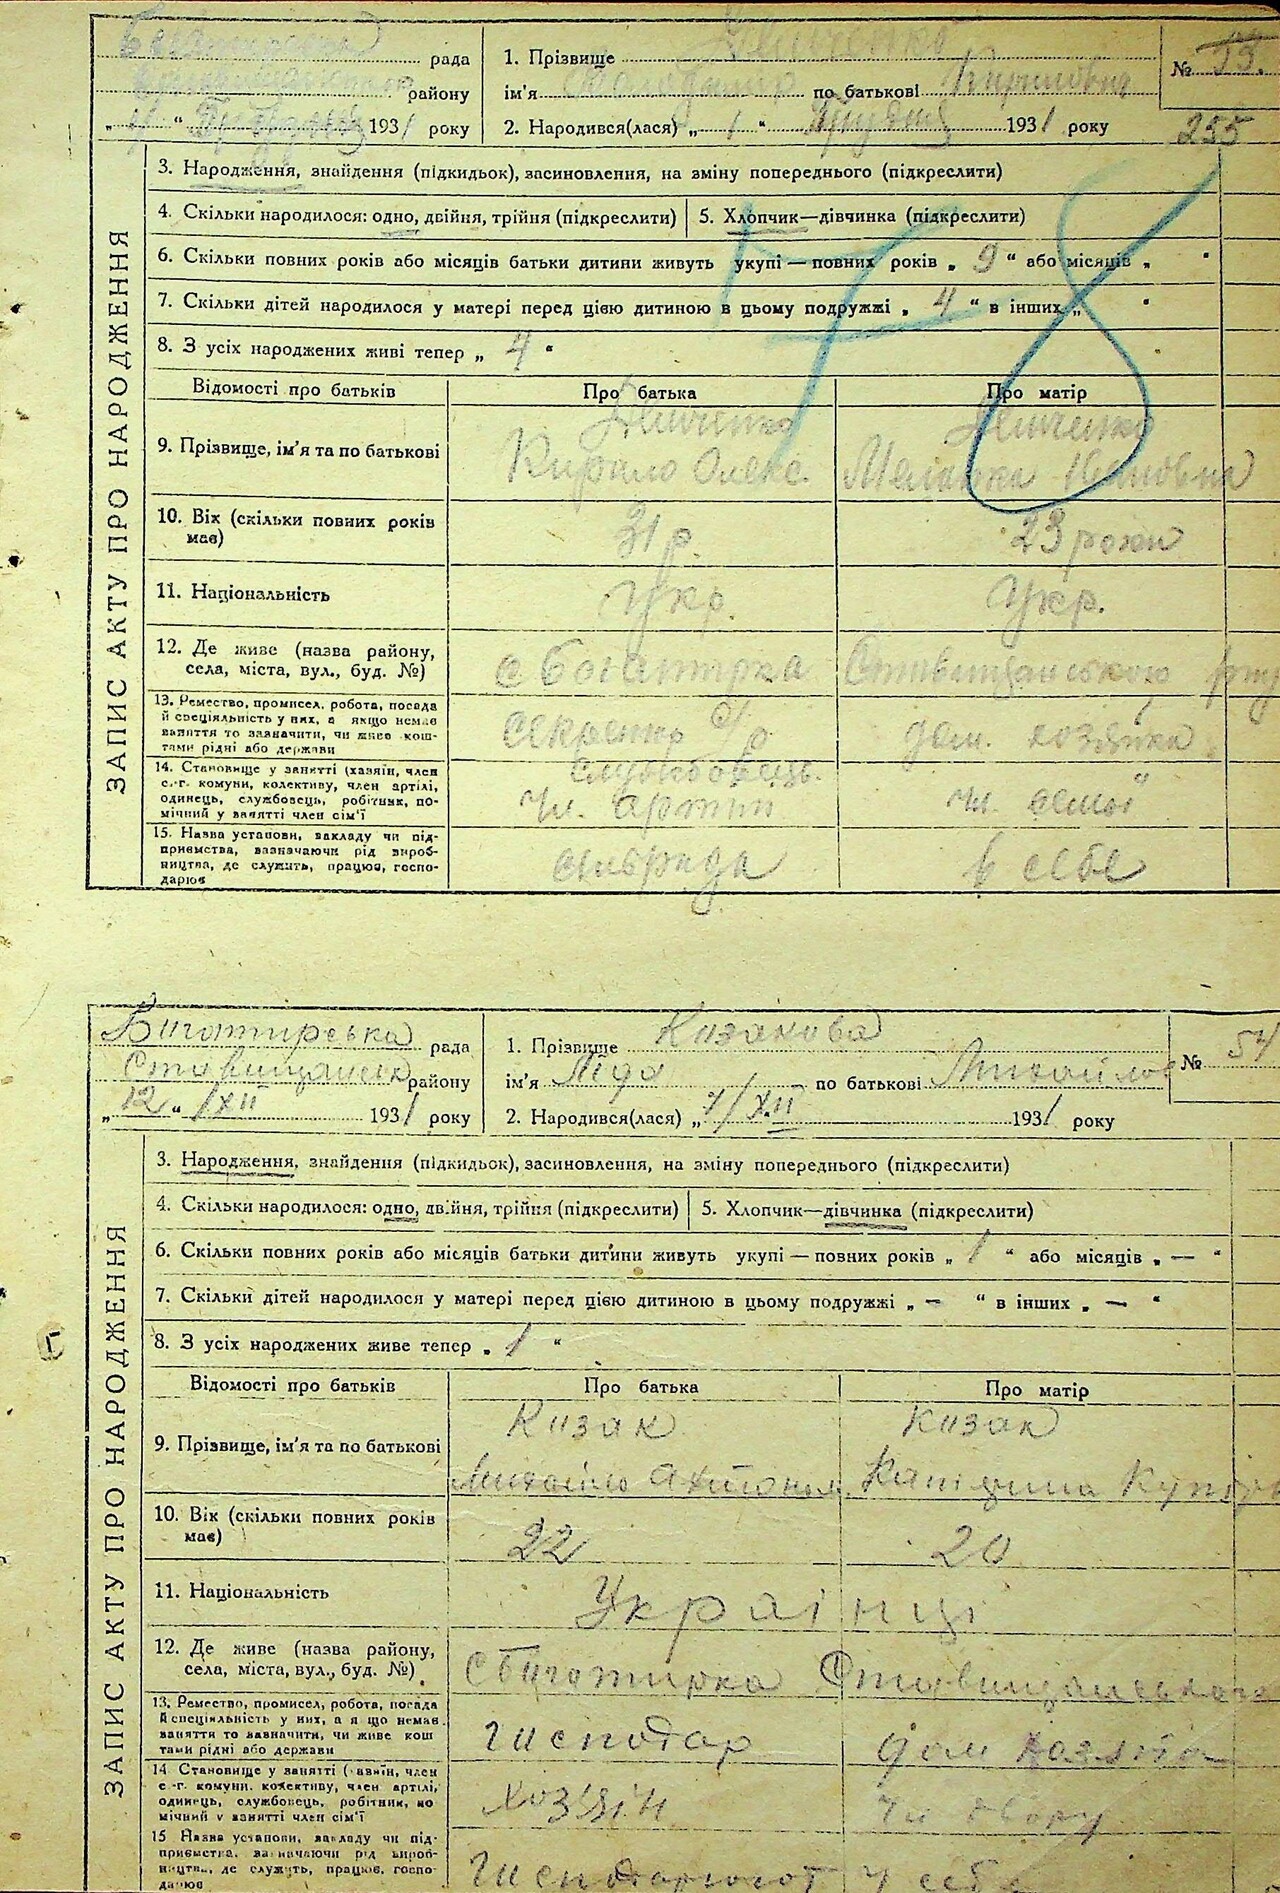 рада
району
1931 року
1. Прізвище
ім'я по батькові Кириловид
2. Народився(лася) „ 1 " Грудня 1931 року
№ 53.
255
ЗАПИС АКТУ ПРО НАРОДЖЕННЯ
3. Народження, знайдення (підкидьок), засиновлення, на зміну попереднього (підкреслити)
4. Скільки народилося: одно, двійня, трійня (підкреслити)
5. Хлопчик—дівчинка (підкреслити)
6. Скільки повних років або місяців батьки дитини живуть укупі — повних років „ 9 " або місяців „ "
7. Скільки дітей народилося у матері перед цією дитиною в цьому подружжі „ 4 " в інших „ "
8. З усіх народжених живі тепер „ 4 "
78
Відомості про батьків Про батька Про матір
9. Прізвище, ім'я та по батькові
Кирило Олекс. Меланка Івановна
10. Вік (скільки повних років має)
31 р. 23 роки
11. Національність
Укр. Укр.
12. Де живе (назва району, села, міста, вул., буд. №)
с Богатирка Ставищанського р-ну
13. Ремество, промисел, робота, посада й спеціяльність у них, а якщо немає заняття то зазначити, чи живе коштами рідні або держави
Секретар с/р дом. хозяйка
14. Становище у занятті (хазяїн, член с.-г. комуни, колективу, член артілі, одинець, службовець, робітник, помічний у занятті член сім'ї
службовець. "
чл. артілі чл. семьї
15. Назва установи, закладу чи підприємства, зазначаючи рід виробництва, де служить, працює, господарює
сільрада в себе
Богатирська рада
Ставищанськ району
„ 12 " /XII 1931 року
1. Прізвище Козакова
ім'я Ліда по батькові Михайлов
2. Народився(лася) „ 7/XII 1931 року
№ 54
ЗАПИС АКТУ ПРО НАРОДЖЕННЯ
3. Народження, знайдення (підкидьок), засиновлення, на зміну попереднього (підкреслити)
4. Скільки народилося: одно, двійня, трійня (підкреслити)
5. Хлопчик—дівчинка (підкреслити)
6. Скільки повних років або місяців батьки дитини живуть укупі — повних років „ 1 " або місяців „ — "
7. Скільки дітей народилося у матері перед цією дитиною в цьому подружжі „ — " в інших „ — "
8. З усіх народжених живе тепер „ 1 "
Відомості про батьків Про батька Про матір
9. Прізвище, ім'я та по батькові
Козак Козак
Михайло
10. Вік (скільки повних років має)
22 20
11. Національність
Українці
12. Де живе (назва району, села, міста, вул., буд. №)
с Богатирка Ставищанського
13. Ремество, промисел, робота, посада й спеціяльність у них, а я що немає заняття то зазначити, чи живе кош тами рідні або держави
Господар дом хазяйка
14. Становище у занятті (хазяїн, член с.-г. комуни, колективу, член артілі, одинець, службовець, робітник, по мічний у занятті член сім'ї
хозяїн чл двору
15 Назва установи, закладу чи підприємства, зазначаючи рід виробництва, де служить, працює, господарює
Господарюют у себе